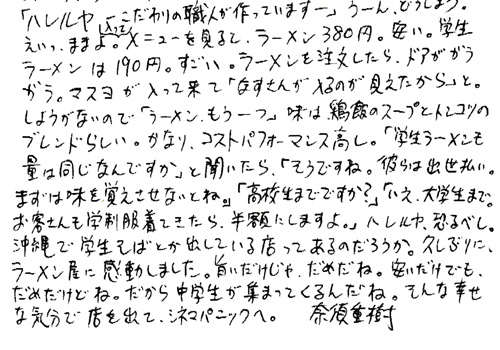 「ハレルヤ、こだわりの職人が作っていますー」うーん、どうしよう。
えいっ、ままよ。入って メニューを見ると、ラーメン380円。安い。学生
ラーメンは190円。すごい。ラーメンを注文したら、ドアがガラ
ガラ。マスヨが入って来て「なすさんが入るのが見えたから」と。
しょうがないので「ラーメン、もう一つ」味は鶏飯のスープとトンコツの
ブレンドらしい。かなり、コストパフォーマンス高し。「学生ラーメンも
量は同じなんですか」と聞いたら、「そうですね。彼らは出世払い。
まずは味を覚えさせないとね。」「高校生までですか?」「いえ、大学生まで。
お客さんも学制服着てきたら、半額にしますよ。」ハレルヤ、恐るべし。
沖縄で学生そばとか出している店ってあるのだろうか。久しぶりに、
ラーメン屋に感動しました。旨いだけじゃ、だめだね。安いだけでも、
だめだけどね。だから中学生が集まってくるんだね。そんな幸せ
な気分で店を出て、シネマパニックへ。 奈須重樹